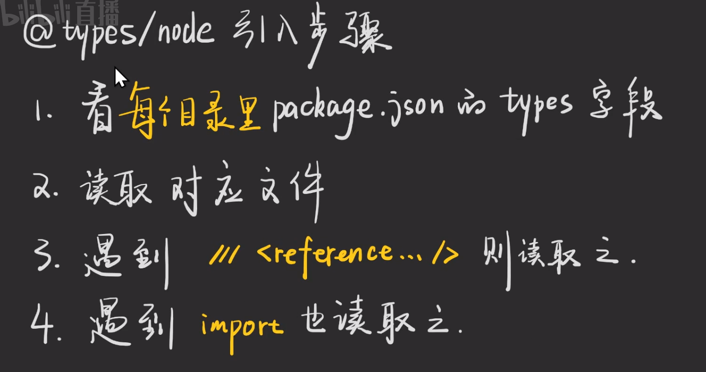 bilibili直播
@types/node 引入步骤
1. 看每个目录里 package.json 的 types 字段
2. 读取对应文件
3. 遇到 /// <reference... /> 则读取之.
4. 遇到 import 也读取之.